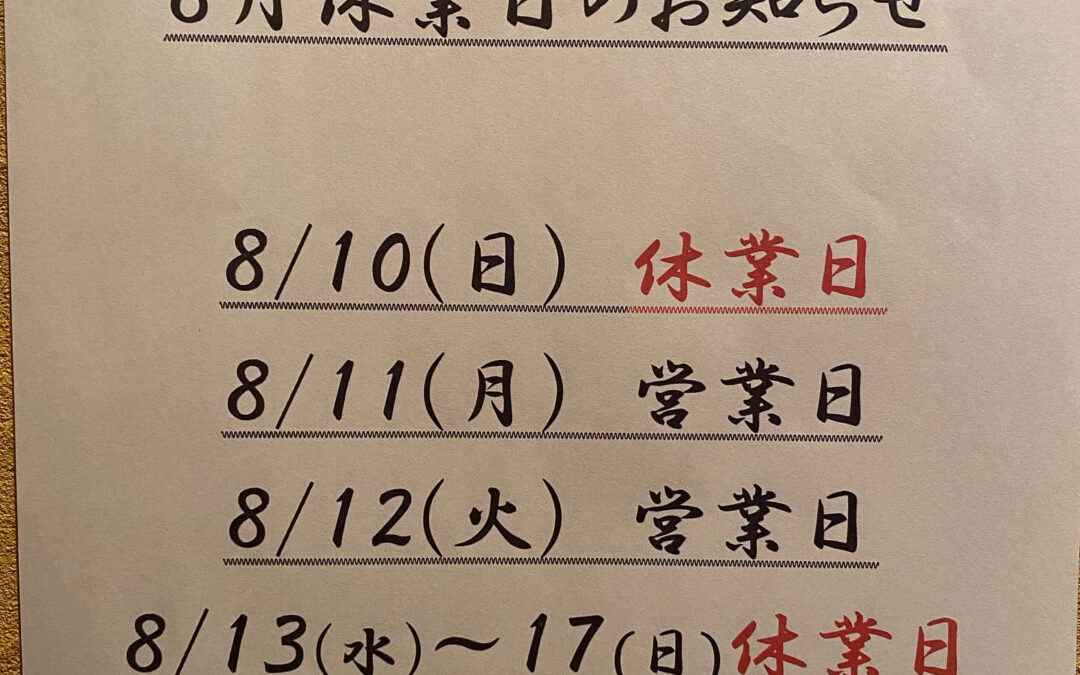 8月休業日のお知らせ
8/10(日) 休業日
8/11(月) 営業日
8/12(火) 営業日
8/13(水)～17(日)休業日